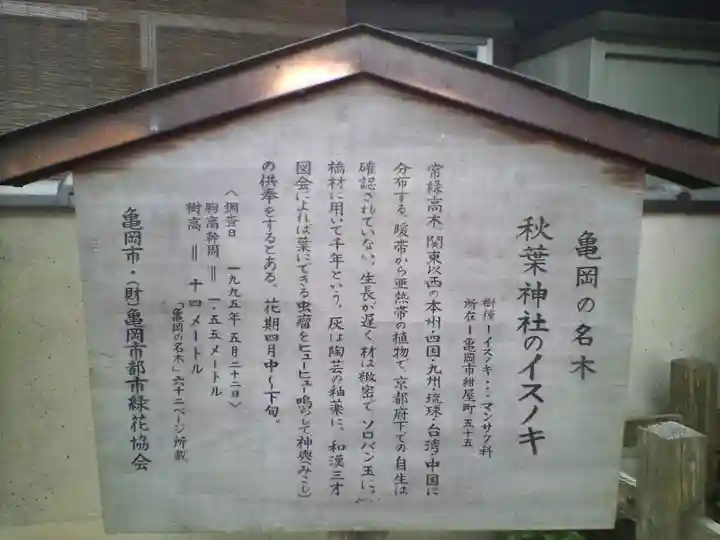 亀岡の名木
秋葉神社のイスノキ
樹種ーイスノキ・・・マンサク科
所在ー亀岡市紺屋町五十五
常緑高木、関東以西の本州・四国・九州・琉球・台湾・中国に
分布する。暖帯から亜熱帯の植物で、京都府下での自生は
確認されていない。生長が遅く材は緻密で、ソロバン玉に、
橋材に用いて千年という。灰は陶芸の釉薬に。和漢三才
図会によれば葉にできる虫癭をヒューヒュー鳴らして神輿(みこし)
の供奉をするとある。花期四月中〜下旬。
〈調査日 一九九五年五月二十二日〉
胸高幹周 ＝ 一・五五メートル
樹高 ＝ 十四メートル
「亀岡の名木」六十二ページ所載
亀岡市・(財)亀岡市都市緑花協会